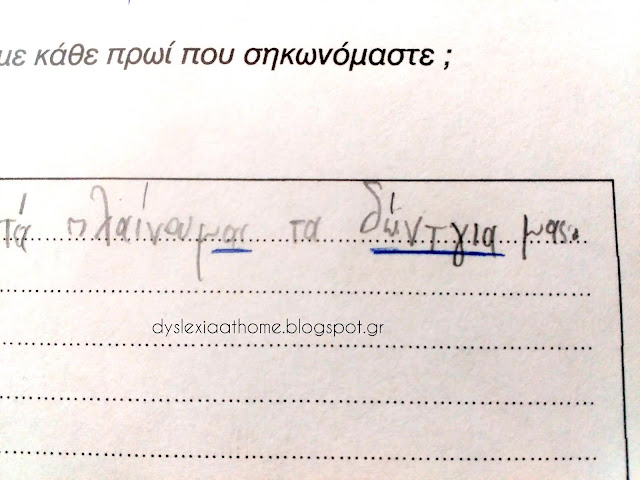 με κάθε πρωί που σηκωνόμαστε ;
τά πλαίνουμαι τα δώντγια μας.
dyslexiaathome.blogspot.gr